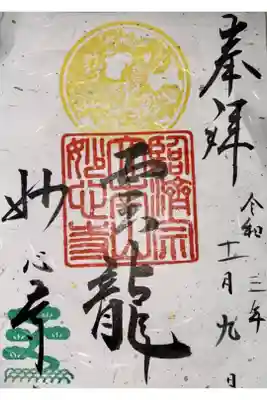 奉拝
令和三年
十一月九日
雲龍
臨済宗
妙心寺
妙心寺